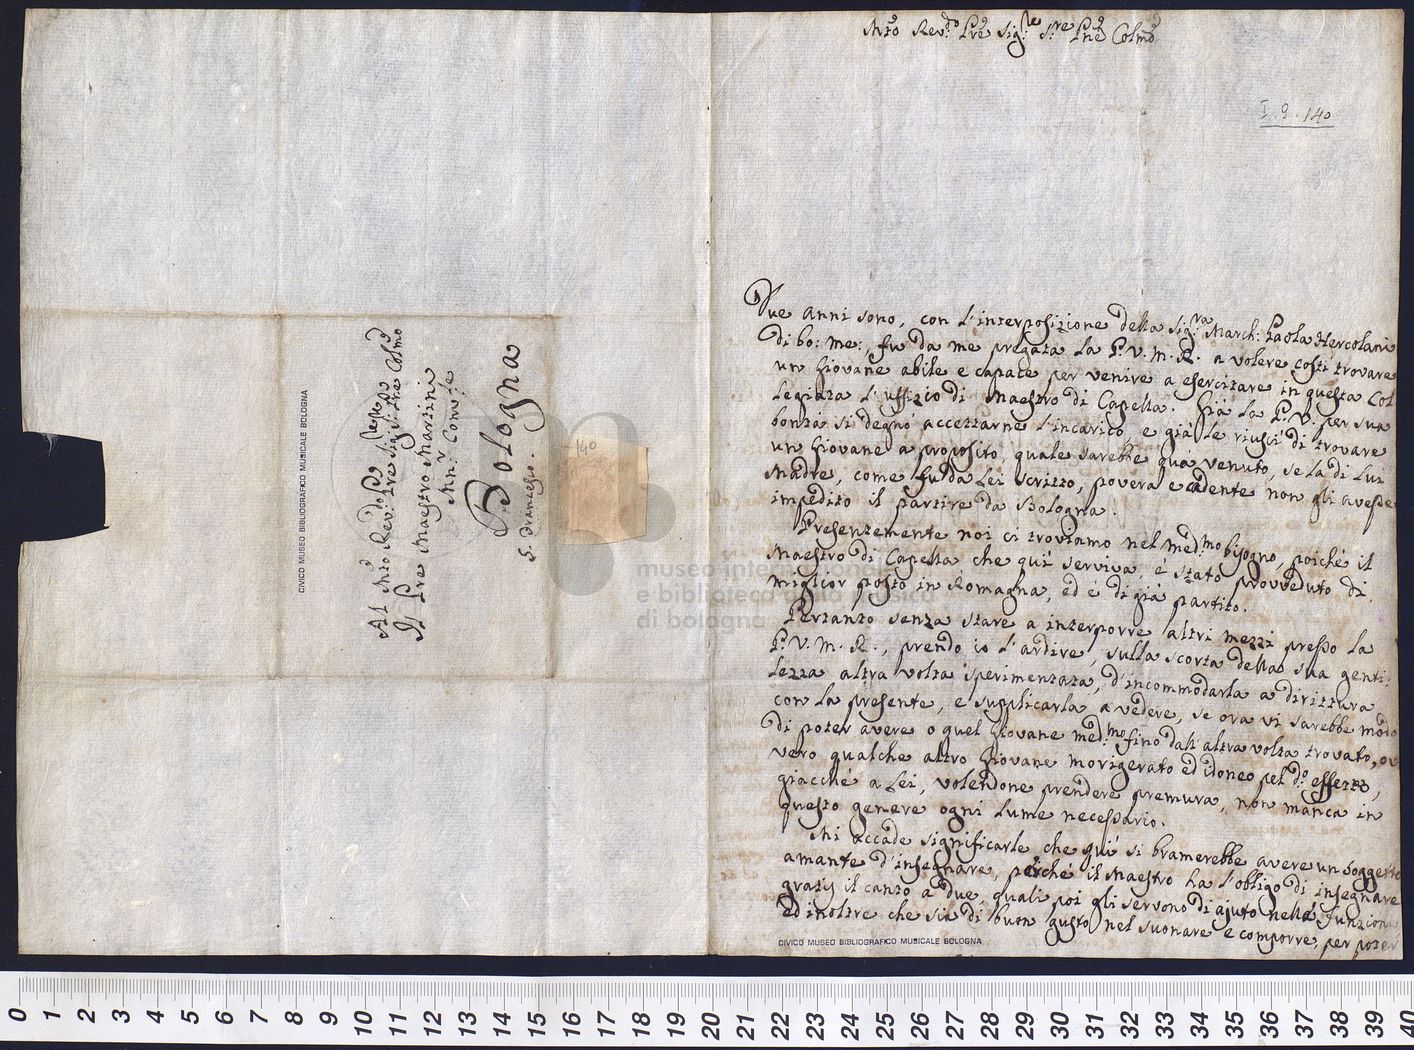 Al Mto Revdo Pre Sigr Pre Colmo
Il Pre Maestro Martini
Minr Convle
Bologna
S. Francesco.
CIVICO MUSEO BIBLIOGRAFICO MUSICALE BOLOGNA
140
museo internazionale
e biblioteca della musica
di bologna
Mto Revdo Pre Sigre Sre Pne Colmo
I. 9. 140
Due anni sono, con l'interposizione della Sigra March: Paola Hercolani
di bo: me:, fu da me pregata la P. V. M. R. a volere costì trovare
un Giovane abile e capace per venire a esercitare in questa Col
legiata l'uffizio di Maestro di Capella. Già la P. V. per sua
bontà si degnò accettarne l'incarico e già le riuscì di trovare
un Giovane a proposito, quale sarebbe quà venuto, se la di lui
Madre, come fu da Lei scritto, povera e cadente non gli avesse
impedito il partire da Bologna.
Presentemente noi ci troviamo nel medmo bisogno, poiché il
Maestro di Capella che quì serviva, è stato provveduto di
miglior posto in Romagna, ed è di già partito.
Pertanto senza stare a interporre altri mezzi presso la
P. V. M. R., prendo io l'ardire, sulla scorta della sua genti:
lezza altra volta sperimentata, d'incommodarla a dirittura
con la presente, e supplicarla a vedere, se ora vi sarebbe modo
di poter avere o quel Giovane medmo fino dall'altra volta trovato, ov
vero qualche altro Giovane morigerato ed idoneo pel do effetto,
giacchè a Lei, volendone prendere premura, non manca in
questo genere ogni lume necessario.
Mi accade significarle che quì si bramerebbe avere un soggetto
amante d'insegnare, perchè il Maestro ha l'obligo di insegnare
gratis il canto a due, quali poi gli servono di ajuto nelle funzioni
ed inoltre che sia di buon gusto nel suonare e comporre, per poter
CIVICO MUSEO BIBLIOGRAFICO MUSICALE BOLOGNA
0 1 2 3 4 5 6 7 8 9 10 11 12 13 14 15 16 17 18 19 20 21 22 23 24 25 26 27 28 29 30 31 32 33 34 35 36 37 38 39 40